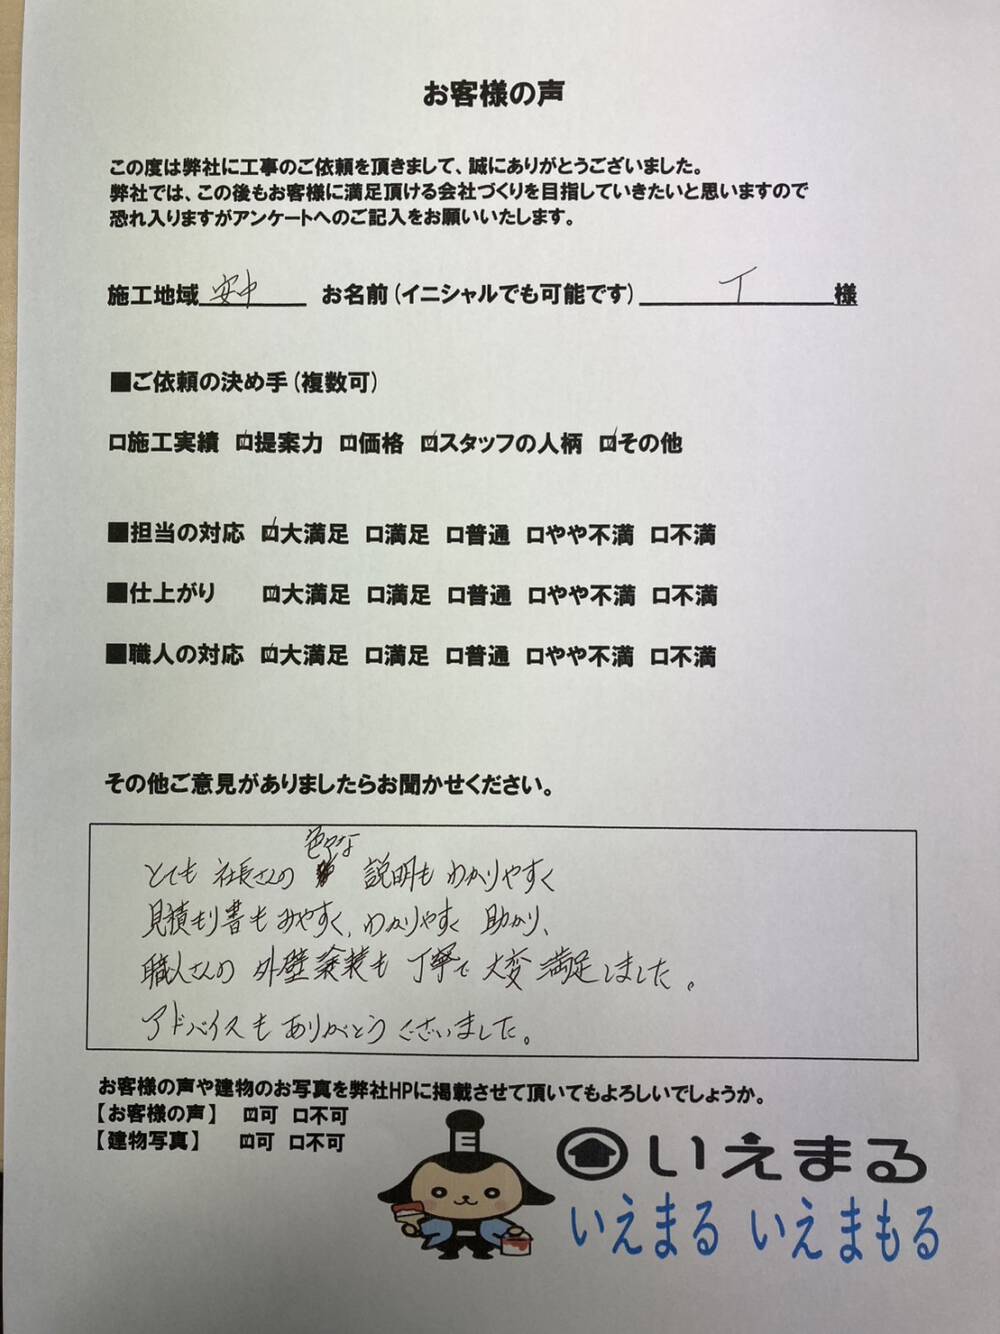 お客様の声
この度は弊社に工事のご依頼を頂きまして、誠にありがとうございました。
弊社では、この後もお客様に満足頂ける会社づくりを目指していきたいと思いますので
恐れ入りますがアンケートへのご記入をお願いいたします。
施工地域 安中 お名前(イニシャルでも可能です) T 様
■ご依頼の決め手(複数可)
□施工実績 ☑提案力 □価格 ☑スタッフの人柄 ☑その他
■担当の対応 ☑大満足 □満足 □普通 □やや不満 □不満
■仕上がり ☑大満足 □満足 □普通 □やや不満 □不満
■職人の対応 ☑大満足 □満足 □普通 □やや不満 □不満
その他ご意見がありましたらお聞かせください。
とても 社長さんの 色々な 説明も わかりやすく
見積もり書も みやすく、わかりやすく 助かり、
職人さんの 外壁塗装も 丁寧で 大変 満足しました。
アドバイスも ありがとう ございました。
お客様の声や建物のお写真を弊社HPに掲載させて頂いてもよろしいでしょうか。
【お客様の声】 ☑可 □不可
【建物写真】 ☑可 □不可
E
いえまる
いえまる いえまもる